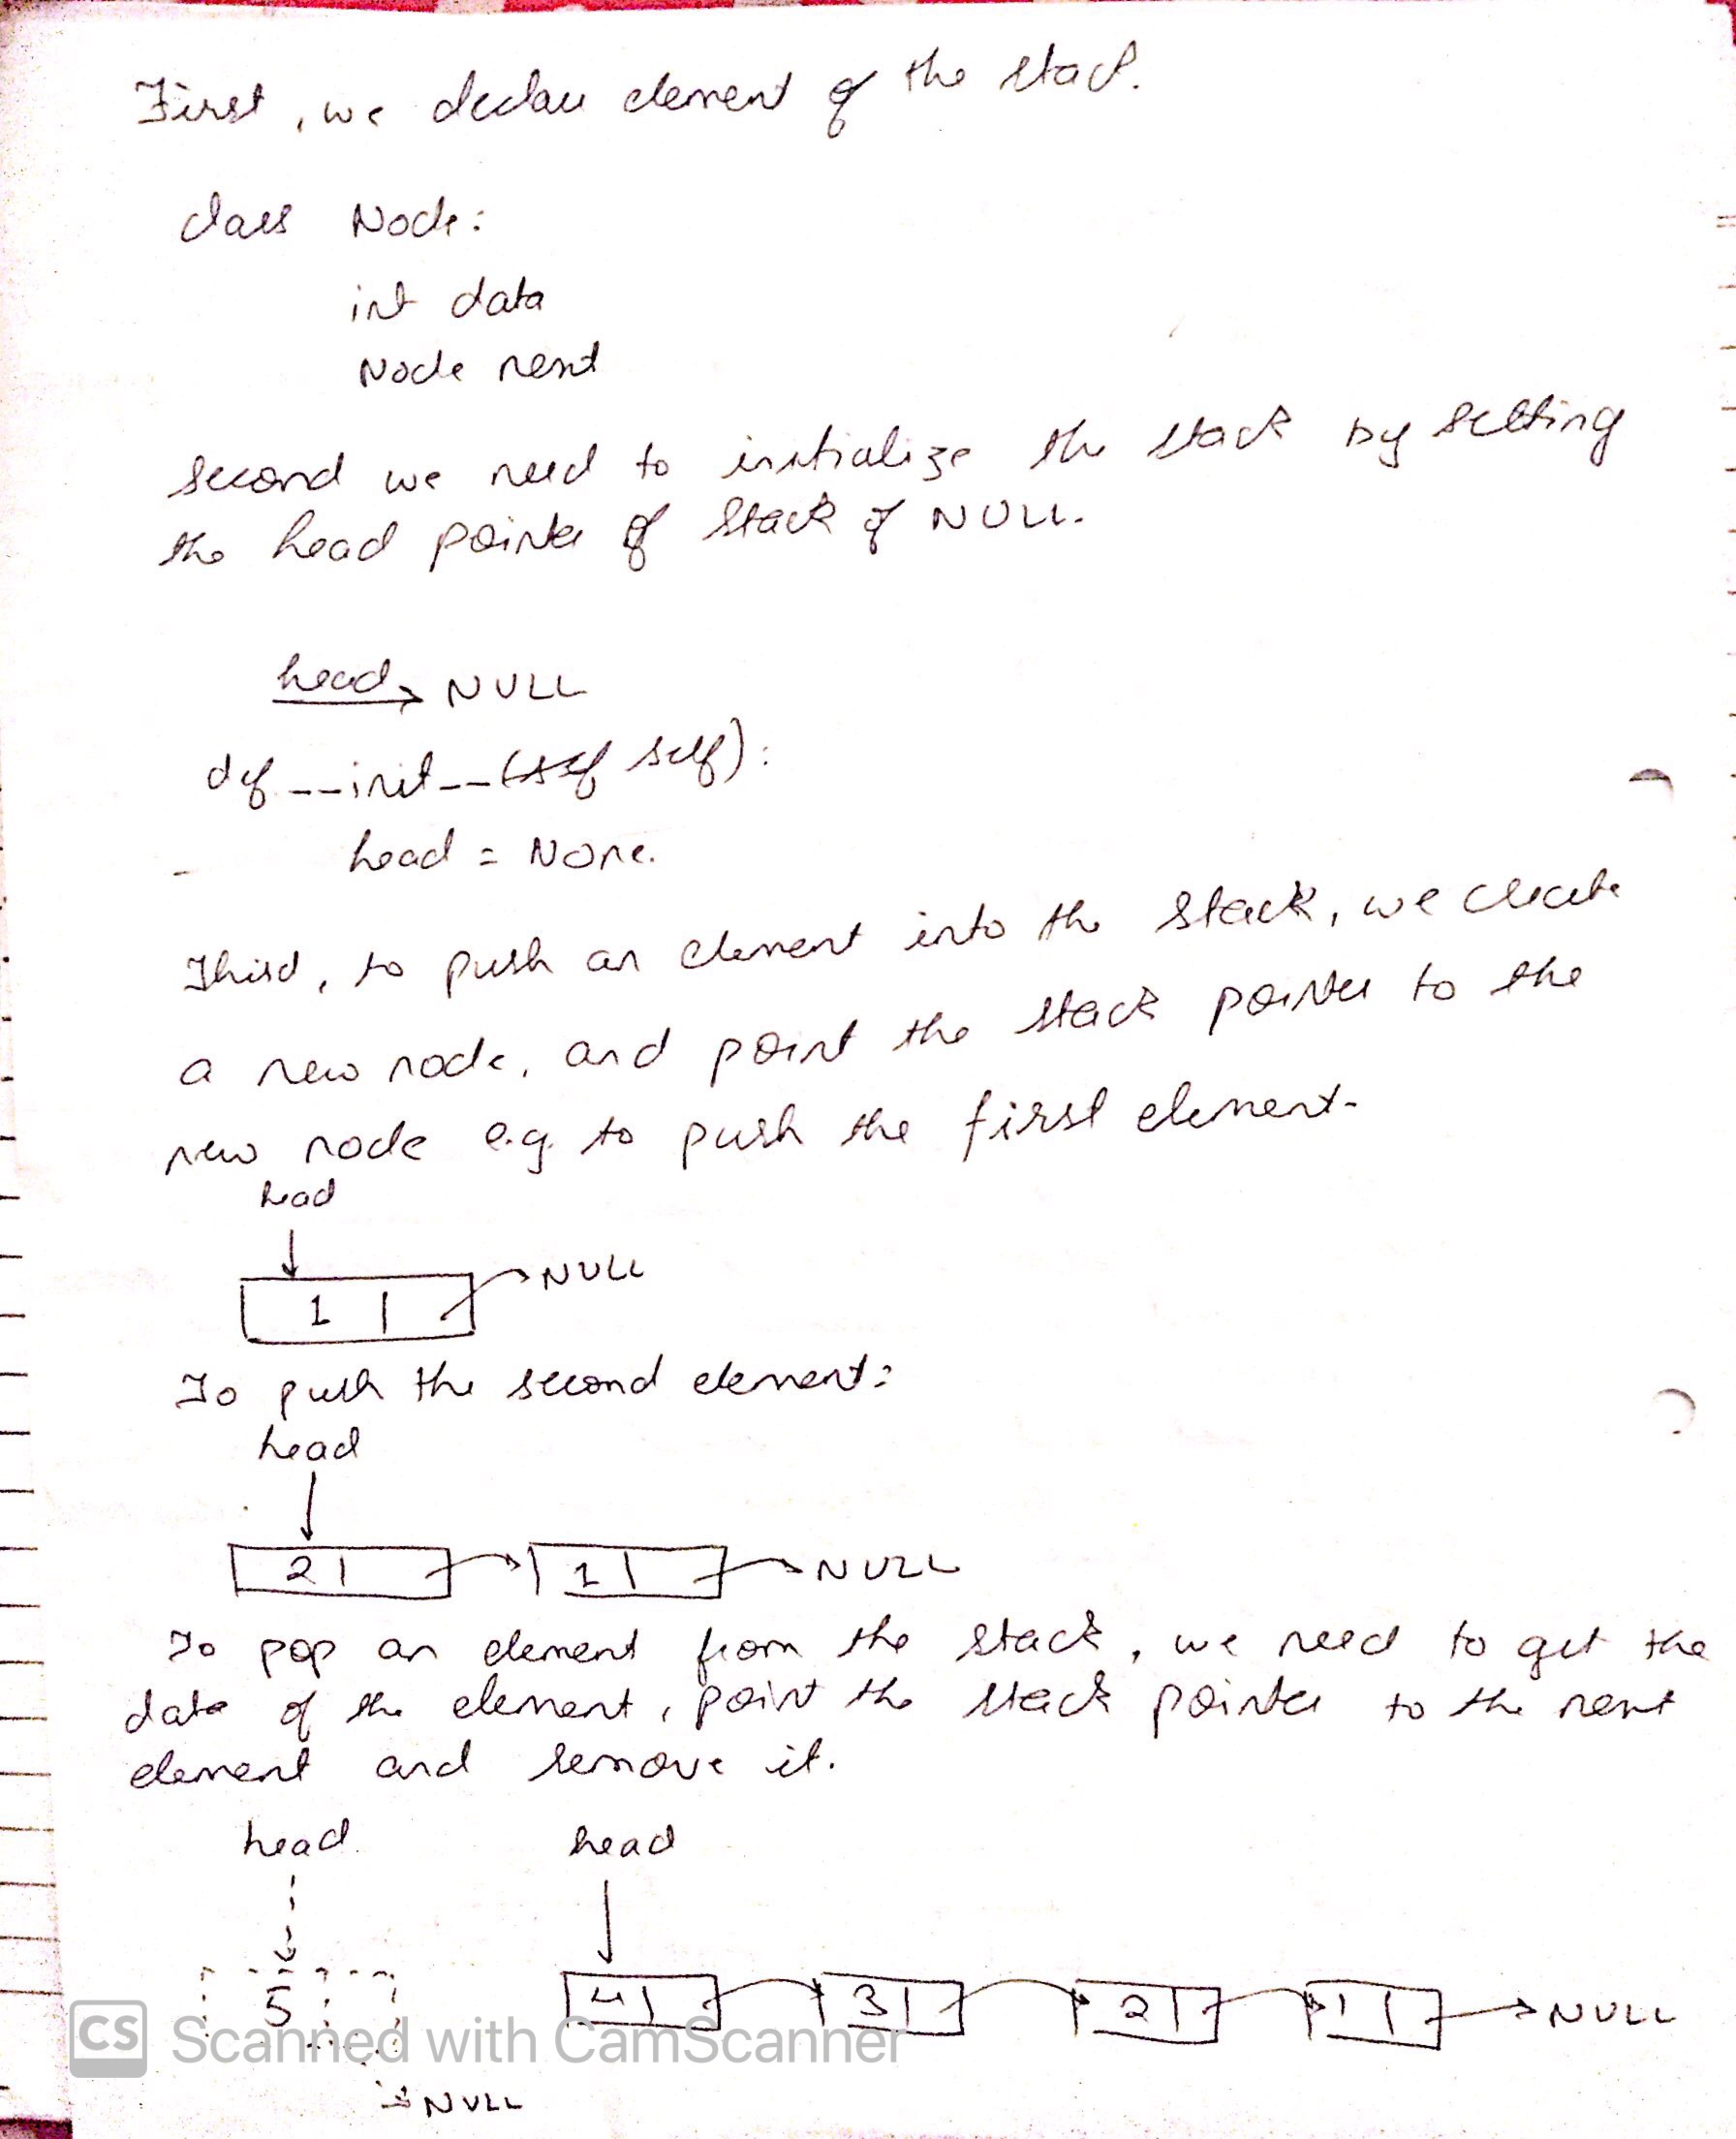 First, we declare element of the stack.
class Node:
int data
Node next
second we need to initialize the stack by setting
the head pointer of stack of NULL.
head → NULL
def __init__(self self):
head = None.
Third, to push an element into the stack, we create
a new node, and point the stack pointer to the
new node e.g. to push the first element-
head
1 NULL
To push the second element:
head
2 1 NULL
To pop an element from the stack, we need to get the
data of the element, point the stack pointer to the next
element and remove it.
head head
5 4 3 2 1 NULL
CS Scanned with CamScanner
NULL